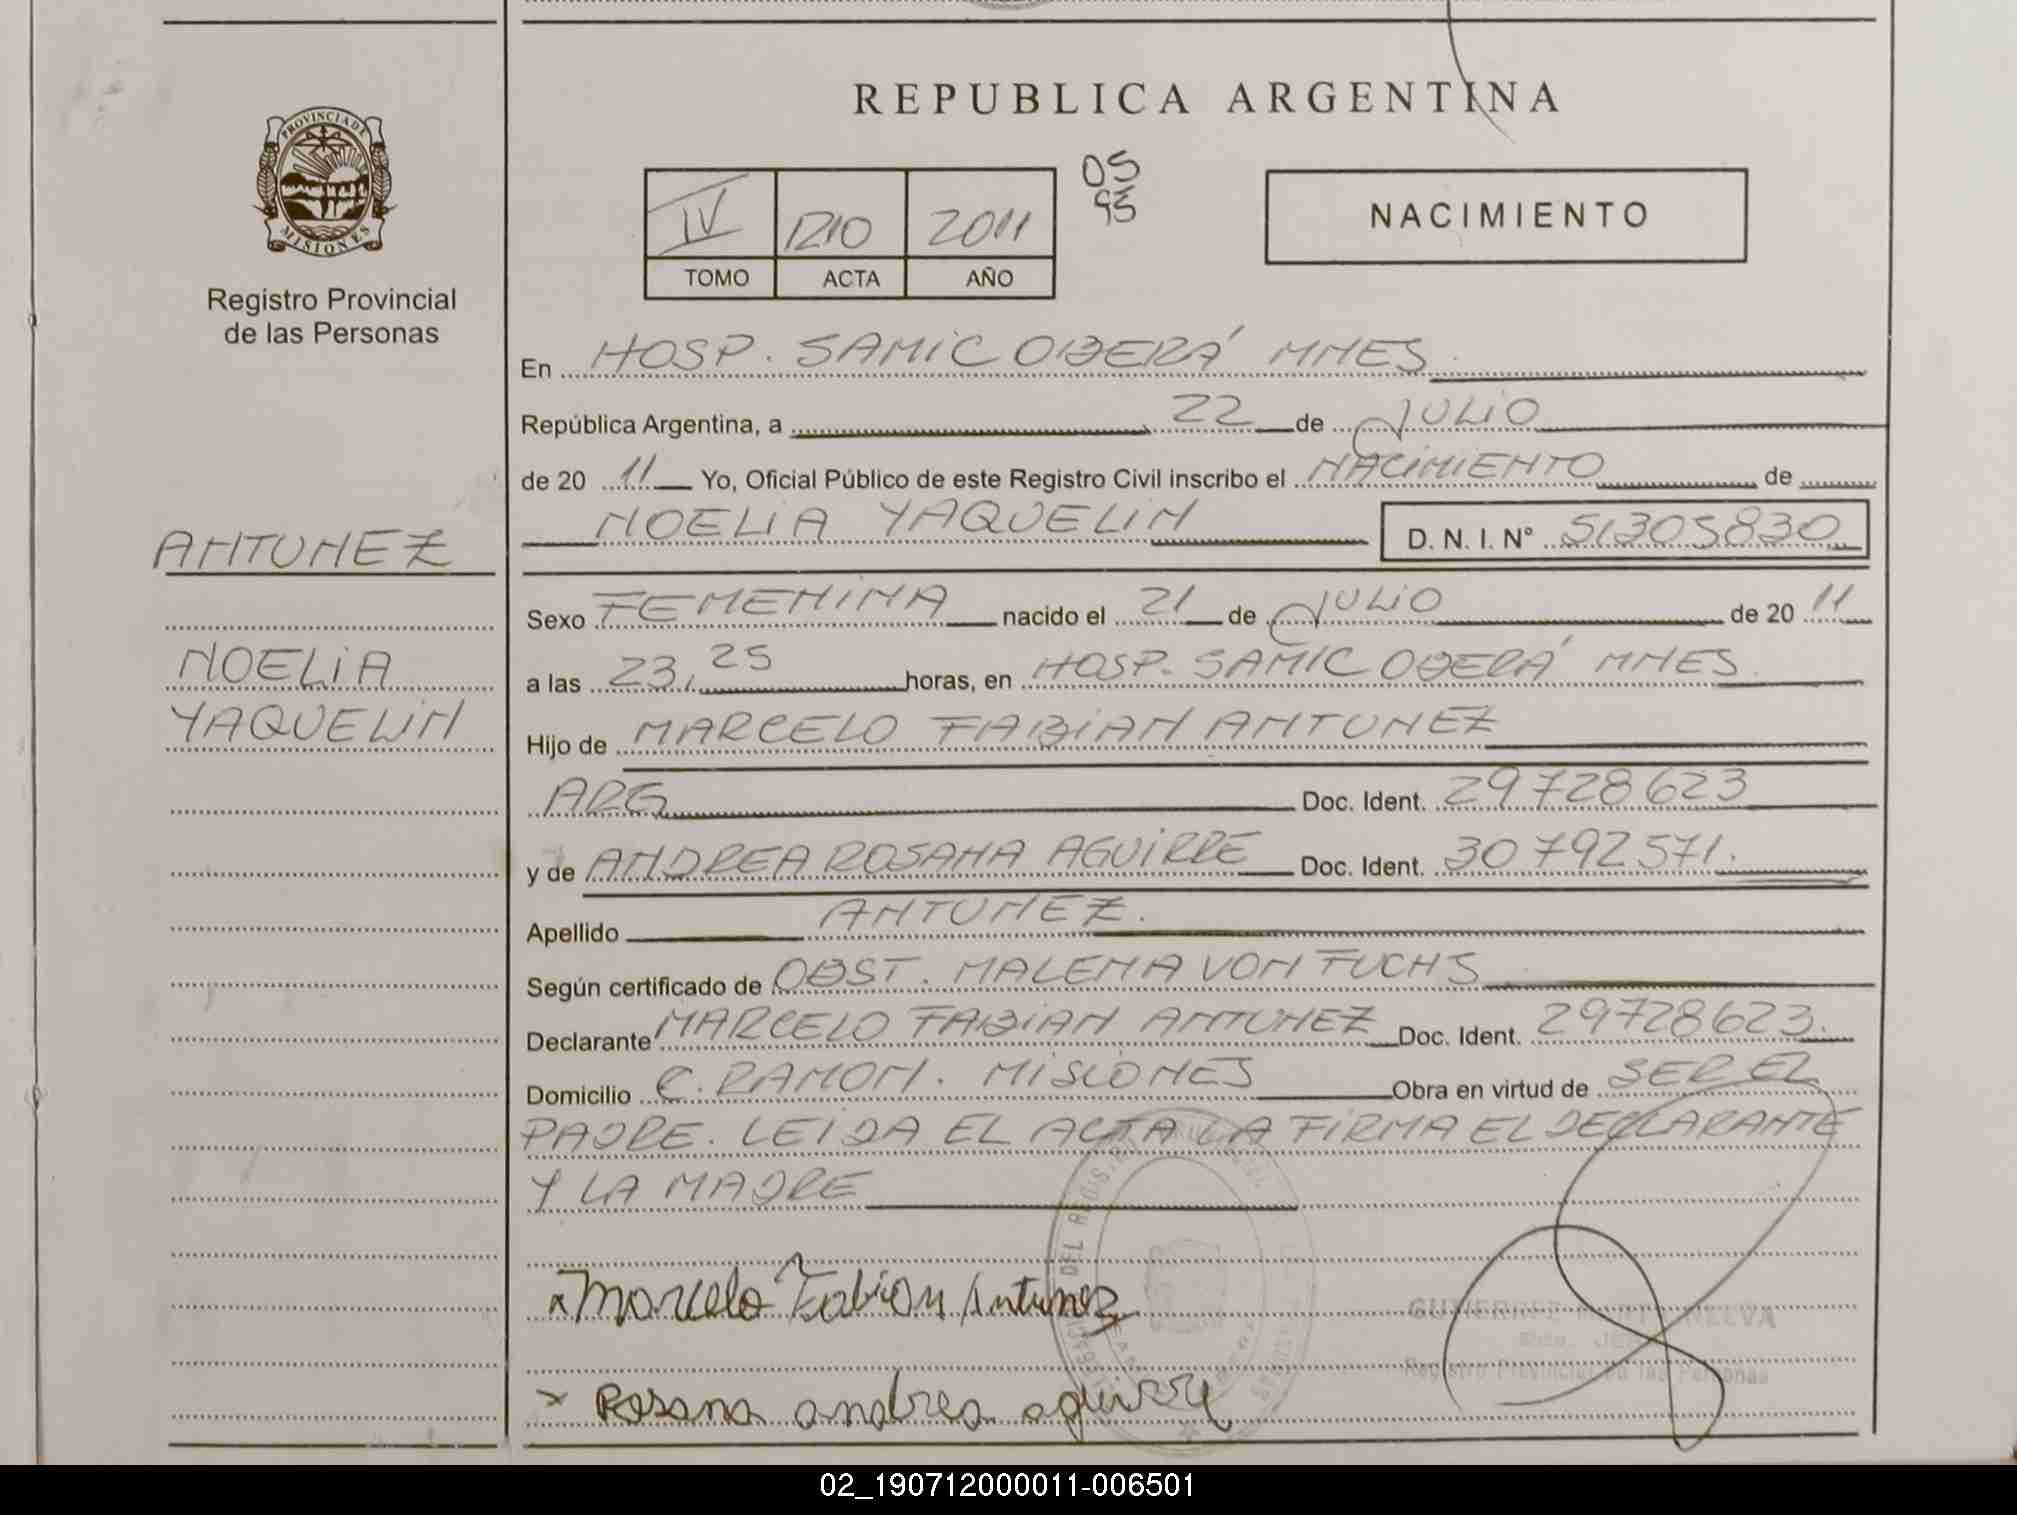 REPUBLICA ARGENTINA
PROVINCIA DE
MISIONES
Registro Provincial
de las Personas
IV 1210 2011
TOMO ACTA AÑO
05
95
NACIMIENTO
En HOSP. SAMIC OBERÁ MNES
República Argentina, a 22 de JULIO
de 20 11 Yo, Oficial Público de este Registro Civil inscribo el NACIMIENTO de
NOELIA YAQUELIN D. N. I. N° 51305830
ANTUNEZ
NOELIA
YAQUELIN
Sexo FEMENINA nacido el 21 de JULIO de 20 11
a las 23,25 horas, en HOSP. SAMIC OBERÁ MNES
Hijo de MARCELO FABIAN ANTUNEZ
ARG Doc. Ident. 29728623
y de ANDREA ROSANA AGUIRRE Doc. Ident. 30792571.
Apellido ANTUNEZ.
Según certificado de OBST. MALENA VON FUCHS
Declarante MARCELO FABIAN ANTUNEZ Doc. Ident. 29728623.
Domicilio C. RAMON. MISIONES Obra en virtud de SER EL
PADRE. LEIDA EL ACTA LA FIRMA EL DECLARANTE
Y LA MADRE
x Marcelo Fabian Antunez
x Rosana andrea aguirre
Registro Provincial de las Personas
02_190712000011-006501